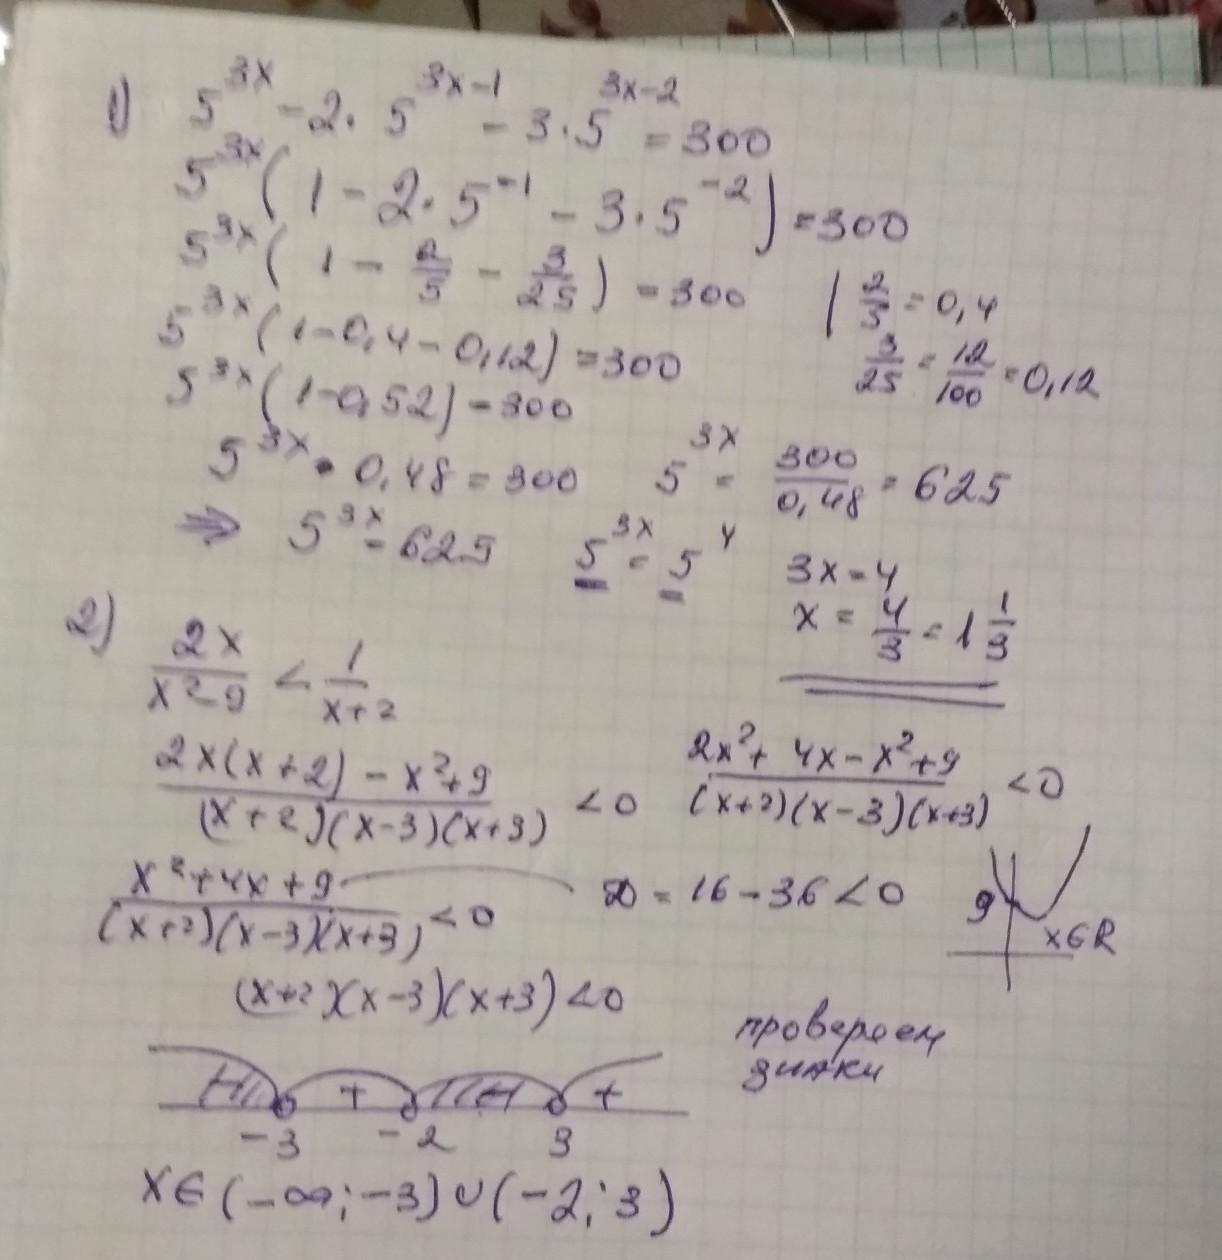 1) 5^{3x} - 2 · 5^{3x-1} - 3 · 5^{3x-2} = 300
5^{3x} (1 - 2 · 5^{-1} - 3 · 5^{-2}) = 300
5^{3x} (1 - 2/5 - 3/25) = 300 | 2/5 = 0,4
5^{3x} (1 - 0,4 - 0,12) = 300 3/25 = 12/100 = 0,12
5^{3x} (1 - 0,52) = 300
5^{3x} · 0,48 = 300 5^{3x} = 300/0,48 = 625
⇒ 5^{3x} = 625 5^{3x} = 5^4 3x = 4
x = 4/3 = 1 1/3
2) 2x/(x²-9) < 1/(x+2)
(2x(x+2) - x²+9)/((x+2)(x-3)(x+3)) < 0 (2x²+4x-x²+9)/((x+2)(x-3)(x+3)) < 0
(x²+4x+9)/((x+2)(x-3)(x+3)) < 0 D = 16 - 36 < 0 9 x∈R
(x+2)(x-3)(x+3) < 0
проверяем
знаки
- + - +
-3 -2 3
x∈(-∞; -3)∪(-2; 3)